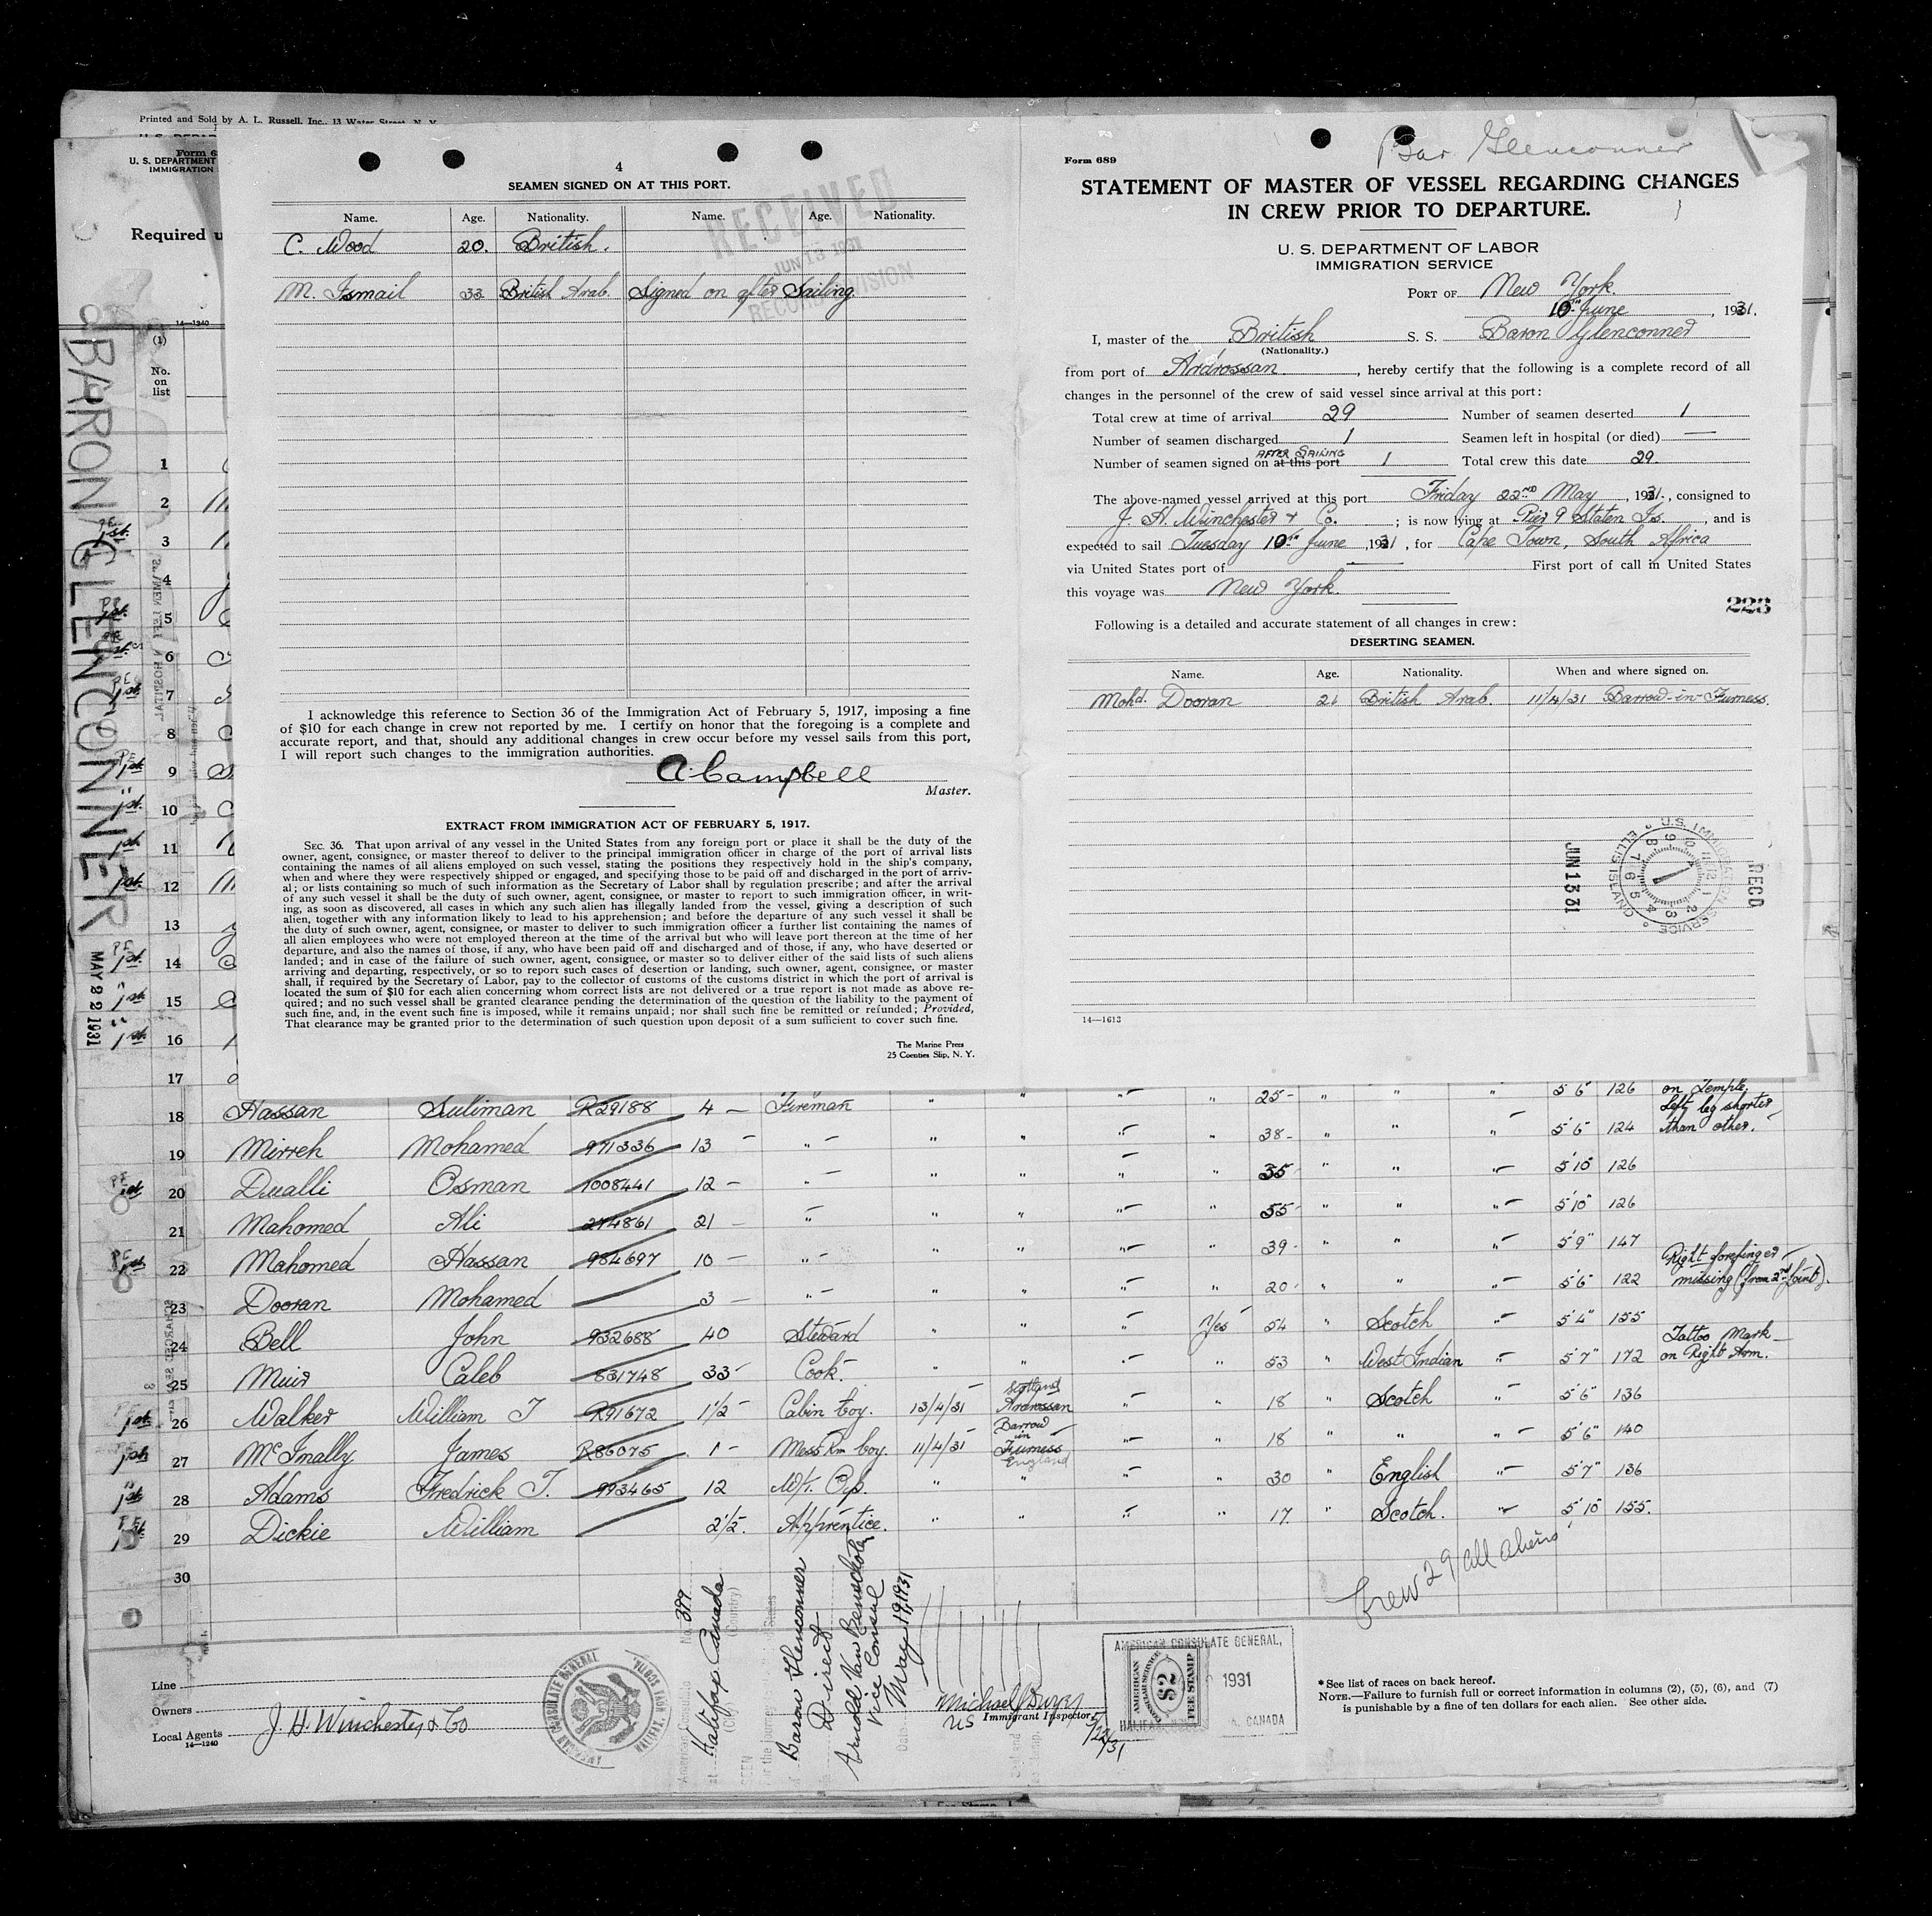 Printed and Sold by A. L. Russell, Inc., 13 Water Street, N. Y.
U. S. DEPARTMENT
IMMIGRATION
Required u
14—1240
(1)
No.
on
list
BARON GLENCONNER
MAY 22 1931
1
2
3
4
5
6
7
8
9
10
11
12
13
14
15
16
17
4
SEAMEN SIGNED ON AT THIS PORT.
Name. Age. Nationality. Name. Age. Nationality.
C. Wood 20. British.
M. Ismail 33 British Arab. Signed on after Sailing.
RECEIVED
JUN 13 1931
RECORD DIVISION
I acknowledge this reference to Section 36 of the Immigration Act of February 5, 1917, imposing a fine
of $10 for each change in crew not reported by me. I certify on honor that the foregoing is a complete and
accurate report, and that, should any additional changes in crew occur before my vessel sails from this port,
I will report such changes to the immigration authorities.
A. Campbell
Master.
EXTRACT FROM IMMIGRATION ACT OF FEBRUARY 5, 1917.
SEC. 36. That upon arrival of any vessel in the United States from any foreign port or place it shall be the duty of the
owner, agent, consignee, or master thereof to deliver to the principal immigration officer in charge of the port of arrival lists
containing the names of all aliens employed on such vessel, stating the positions they respectively hold in the ship's company,
when and where they were respectively shipped or engaged, and specifying those to be paid off and discharged in the port of arriv-
al; or lists containing so much of such information as the Secretary of Labor shall by regulation prescribe; and after the arrival
of any such vessel it shall be the duty of such owner, agent, consignee, or master to report to such immigration officer, in writ-
ing, as soon as discovered, all cases in which any such alien has illegally landed from the vessel, giving a description of such
alien, together with any information likely to lead to his apprehension; and before the departure of any such vessel it shall be
the duty of such owner, agent, consignee, or master to deliver to such immigration officer a further list containing the names of
all alien employees who were not employed thereon at the time of the arrival but who will leave port thereon at the time of her
departure, and also the names of those, if any, who have been paid off and discharged and of those, if any, who have deserted or
landed; and in case of the failure of such owner, agent, consignee, or master so to deliver either of the said lists of such aliens
arriving and departing, respectively, or so to report such cases of desertion or landing, such owner, agent, consignee, or master
shall, if required by the Secretary of Labor, pay to the collector of customs of the customs district in which the port of arrival is
located the sum of $10 for each alien concerning whom correct lists are not delivered or a true report is not made as above re-
quired; and no such vessel shall be granted clearance pending the determination of the question of the liability to the payment of
such fine, and, in the event such fine is imposed, while it remains unpaid; nor shall such fine be remitted or refunded; Provided,
That clearance may be granted prior to the determination of such question upon deposit of a sum sufficient to cover such fine.
The Marine Press
25 Coenties Slip, N. Y.
Bar Glenconner
Form 689
STATEMENT OF MASTER OF VESSEL REGARDING CHANGES
IN CREW PRIOR TO DEPARTURE.
U. S. DEPARTMENT OF LABOR
IMMIGRATION SERVICE
PORT OF New York.
10th June, 1931.
I, master of the British S. S. Baron Glenconner
(Nationality.)
from port of Ardrossan, hereby certify that the following is a complete record of all
changes in the personnel of the crew of said vessel since arrival at this port:
Total crew at time of arrival 29 Number of seamen deserted 1
Number of seamen discharged 1 Seamen left in hospital (or died) —
AFTER SAILING
Number of seamen signed on at this port 1 Total crew this date 29.
The above-named vessel arrived at this port Friday 22nd May, 1931., consigned to
J. H. Winchester & Co.; is now lying at Pier 9 Staten Is., and is
expected to sail Tuesday 10th June, 1931, for Cape Town, South Africa
via United States port of — First port of call in United States
this voyage was New York.
223
Following is a detailed and accurate statement of all changes in crew:
DESERTING SEAMEN.
Name. Age. Nationality. When and where signed on.
Mohd. Dooran 21 British Arab. 11/4/31 Barrow-in-Furness.
JUN 13 31
U.S. IMMIGRATION SERVICE ELLIS ISLAND
RECD
14—1613
5'6" 126 on Temple.
18 Hassan Suliman R29188 4 — Fireman " " " " 25 " " " 5'6" 124 Left leg shorter than other.
19 Mirreh Mohamed 971336 13 — " " " " " 38 " " " 5'10" 126
20 Dualli Osman 1008441 12 — " " " " " 35 " " " 5'10" 126
21 Mahomed Ali 274861 21 — " " " " " 55 " " " 5'9" 147
22 Mahomed Hassan 984697 10 — " " " " " 39 " " " 5'6" 122 Right forefinger missing (from 2nd joint).
23 Dooran Mohamed 3 — " " " " " 20 " "
24 Bell John 932688 40 Steward " " " Yes 54 " Scotch " 5'4" 155
25 Muir Caleb 831748 33 Cook. " " " " 53 " West Indian " 5'7" 172 Tattoo Mark on Right Arm.
26 Walker William J R91672 1½ Cabin boy. 13/4/31 Scotland Ardrossan " " 18 " Scotch " 5'6" 136
27 McInally James R86075 1 — Mess Rm boy. 11/4/31 Barrow in Furness England " " 18 " " " 5'6" 140
28 Adams Fredrick T. 993465 12 W/T. Op. " " " " 30 " English " 5'7" 136
29 Dickie William 2½. Apprentice. " " " " 17 " Scotch. " 5'10" 155.
30
Crew 29 all aliens
Line
Owners
Local Agents J. H. Winchester & Co
14—1240
AMERICAN CONSULATE GENERAL
HALIFAX, NOVA SCOTIA
No. 399
American Consulate
at Halifax Canada
(City) (Country)
SEEN
Baron Glenconner
Direct
Arnold Van Benschoten
Vice Consul
Date May 19, 1931
Michael J
US Immigrant Inspector
5/22/31
AMERICAN CONSULATE GENERAL,
AMERICAN CONSULAR SERVICE $2 FEE STAMP
1931
HALIFAX, CANADA
*See list of races on back hereof.
NOTE.—Failure to furnish full or correct information in columns (2), (5), (6), and (7)
is punishable by a fine of ten dollars for each alien. See other side.